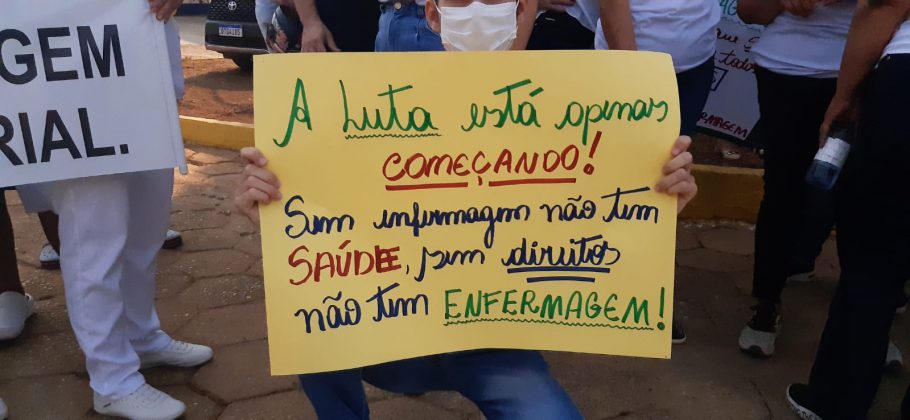 AGEM
RIAL.
A Luta está apenas
COMEÇANDO!
Sem enfermagem não tem
SAÚDE, sem direitos
não tem ENFERMAGEM!
todos
ERMAGEM